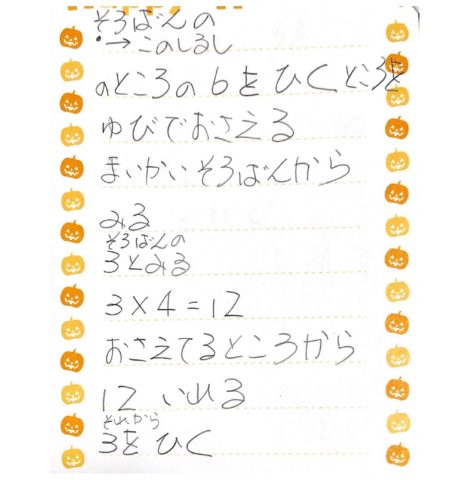 そろばんの
•→このしるし
のところの6をひくところを
ゆびでおさえる
まいかいそろばんから
みる
そろばんの
3とみる
3×4=12
おさえてるところから
12いれる
それから
3をひく